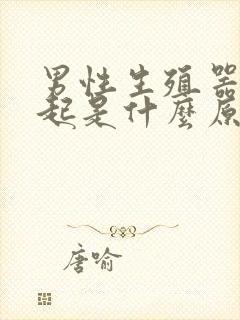 男性生殖器
起是什麼原
唐喻